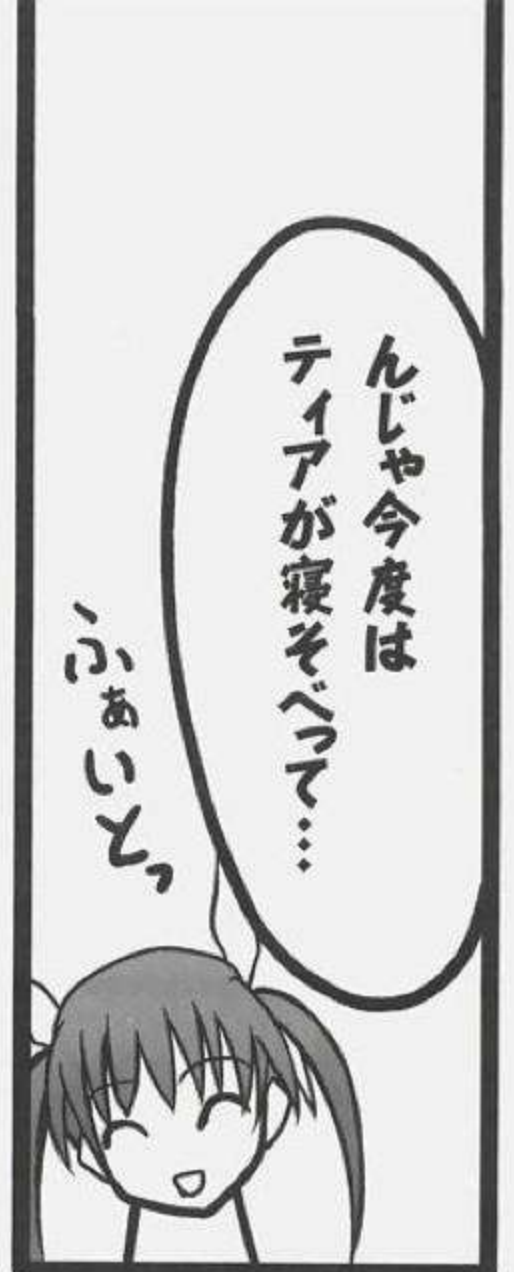 んじゃ今度は
ティアが寝そべって…
ふぁいとっ